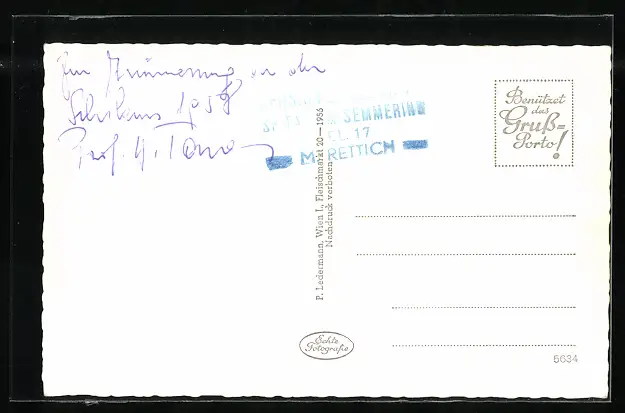 Zur Erinnerung an den
1958
Prof. H.
SEMMERING
TEL. 17
M. RETTICH
P. Ledermann, Wien I., Fleischmarkt 20—1956
Nachdruck verboten
Benützet
das
Gruß=
Porto!
Echte
Fotografie
5634